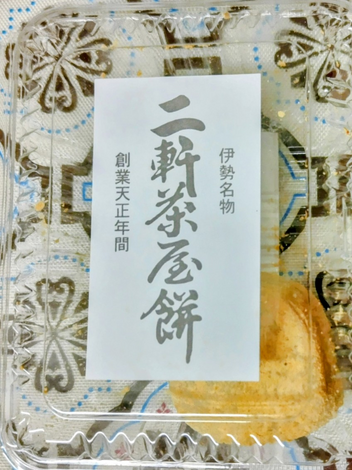 伊勢名物
二軒茶屋餅
創業天正年間